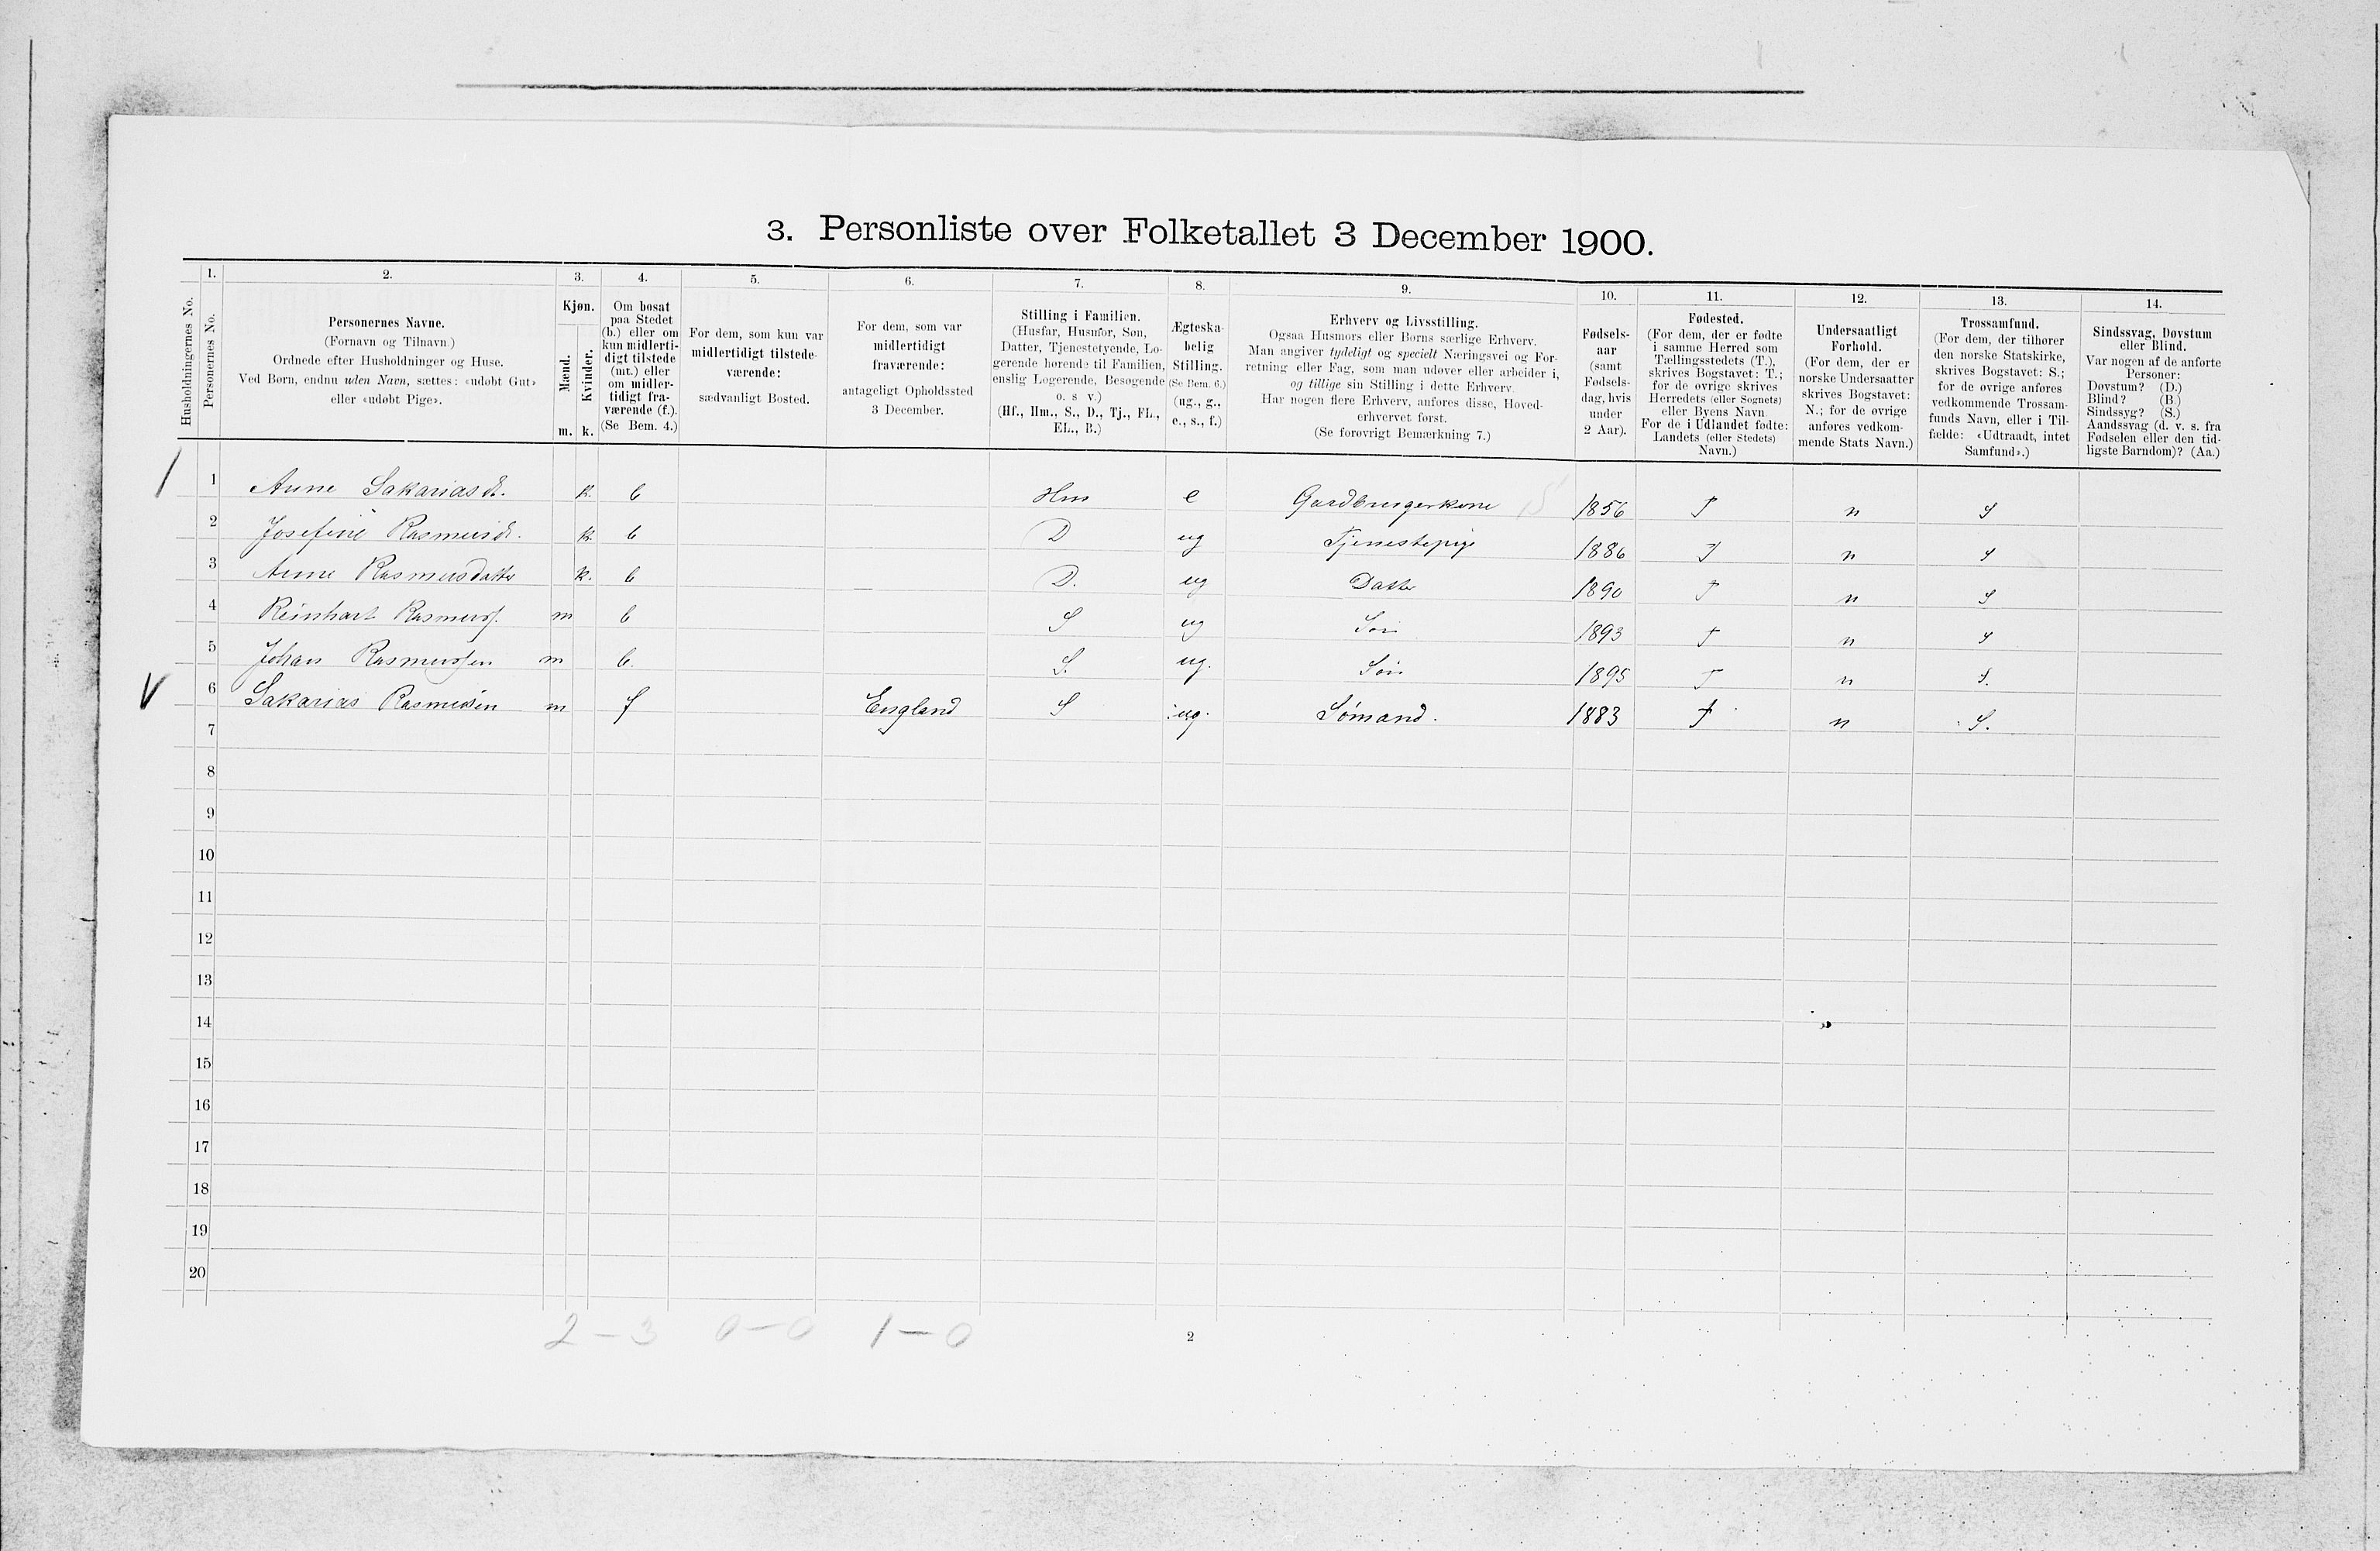 3. Personliste over Folketallet 3 December 1900.
Husholdningernes No.
1. Personernes No.
2. Personernes Navne. (Fornavn og Tilnavn.) Ordnede efter Husholdninger og Huse. Ved Børn, endnu uden Navn, sættes: «udøbt Gut» eller «udøbt Pige».
3. Kjøn. Mænd. m. Kvinder. k.
4. Om bosat paa Stedet (b.) eller om kun midlertidigt tilstede (mt.) eller om midlertidigt fraværende (f.). (Se Bem. 4.)
5. For dem, som kun var midlertidigt tilstedeværende: sædvanligt Bosted.
6. For dem, som var midlertidigt fraværende: antageligt Opholdssted 3 December.
7. Stilling i Familien. (Husfar, Husmor, Søn, Datter, Tjenestetyende, Logerende hørende til Familien, enslig Logerende, Besøgende o. s v.) (Hf., Hm., S., D., Tj., FL., EL., B.)
8. Ægteskabelig Stilling. (Se Bem. 6.) (ug., g., e., s., f.)
9. Erhverv og Livsstilling. Ogsaa Husmors eller Børns særlige Erhverv. Man angiver tydeligt og specielt Næringsvei og Forretning eller Fag, som man udøver eller arbeider i, og tillige sin Stilling i dette Erhverv. Har nogen flere Erhverv, anføres disse, Hovederhvervet først. (Se forøvrigt Bemærkning 7.)
10. Fødselsaar (samt Fødselsdag, hvis under 2 Aar).
11. Fødested. (For dem, der er fødte i samme Herred som Tællingsstedets (T.), skrives Bogstavet: T.; for de øvrige skrives Herredets (eller Sognets) eller Byens Navn. For de i Udlandet fødte: Landets (eller Stedets) Navn.)
12. Undersaatligt Forhold. (For dem, der er norske Undersaatter skrives Bogstavet: N.; for de øvrige anføres vedkommende Stats Navn.)
13. Trossamfund. (For dem, der tilhører den norske Statskirke, skrives Bogstavet: S.; for de øvrige anføres vedkommende Trossamfunds Navn, eller i Tilfælde: «Udtraadt, intet Samfund».)
14. Sindssvag, Døvstum eller Blind. Var nogen af de anførte Personer: Døvstum? (D.) Blind? (B.) Sindssyg? (S.) Aandssvag (d. v. s. fra Fødselen eller den tidligste Barndom)? (Aa.)
1 Anne Sakariasd. k. b Hm e Gaardbrugerkone 15 1856 T n S
2 Josefine Rasmusd. k b D ug Tjenestepige 1886 T n S
3 Anne Rasmusdatter k. b D. ug Datter 1890 T n S
4 Reinhart Rasmuss. m b S ug Søn 1893 T n S
5 Johan Rasmussen m b. S. ug. Søn 1895 T n S.
6 Sakarias Rasmussen m f England S ug. Sømand. 1883 T n S.
7
8
9
10
11
12
13
14
15
16
17
18
19
20
2 – 3 0 – 0 1 – 0
2